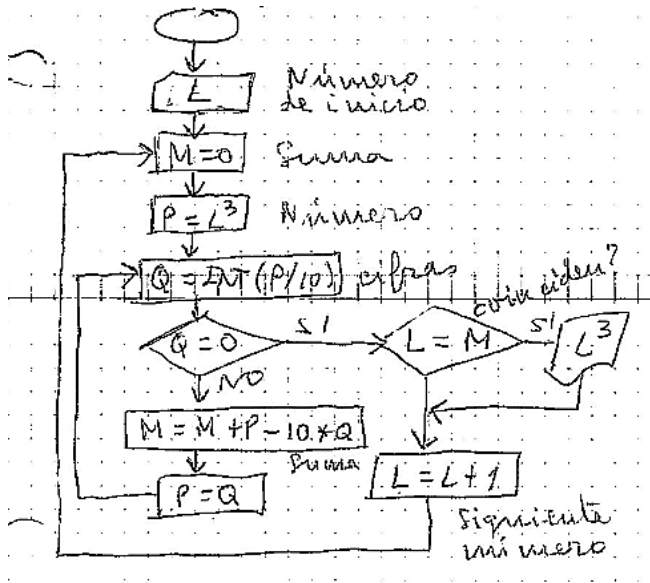 L
Número
de inicio
M = 0
Suma
P = L³
Número
Q = INT (P/10)
cifras
coinciden?
Q = 0
SI
L = M
SI
L³
NO
M = M + P - 10 * Q
Suma
P = Q
L = L + 1
Siguiente
número